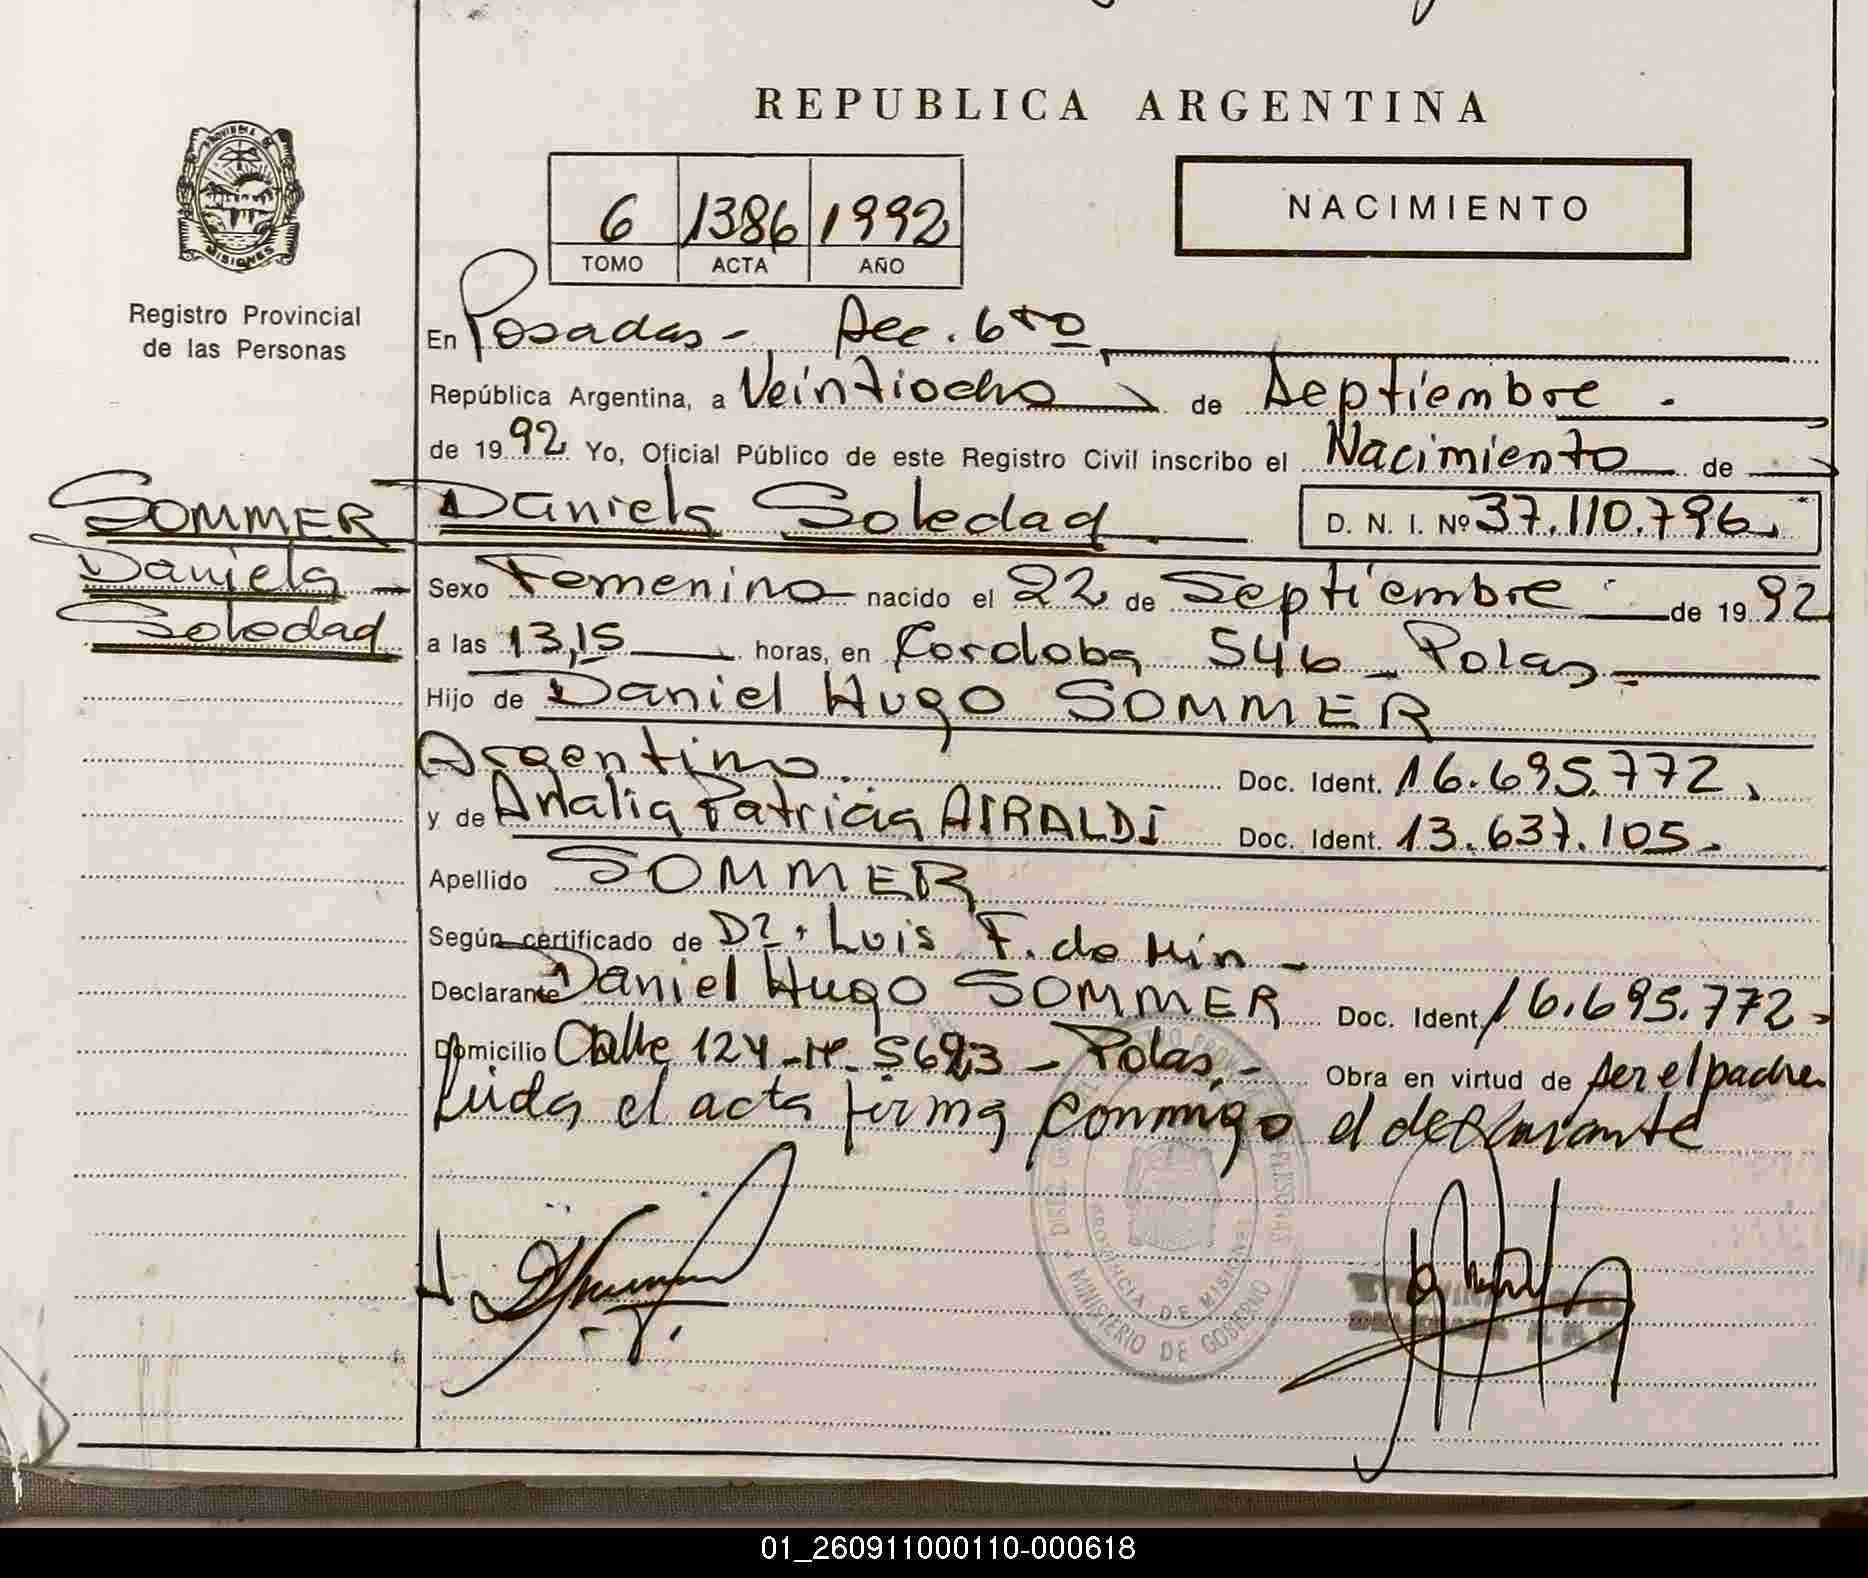 REPUBLICA ARGENTINA
PROVINCIA DE MISIONES
Registro Provincial
de las Personas
6 1386 1992
TOMO ACTA AÑO
NACIMIENTO
En Posadas - Sec. 6ta
República Argentina, a Veintiocho de Septiembre.
de 1992 Yo, Oficial Público de este Registro Civil inscribo el Nacimiento de
SOMMER
Daniela
Soledad
Daniela Soledad D. N. I. Nº 37.110.796.
Sexo Femenino nacido el 22 de Septiembre de 1992
a las 13,15 horas, en Cordoba 546 - Pdas.
Hijo de Daniel Hugo SOMMER
Argentino. Doc. Ident. 16.695.772.
y de Analia Patricia AIRALDI Doc. Ident. 13.637.105.
Apellido SOMMER
Según certificado de Dr. Luis F. de
Declarante Daniel Hugo SOMMER Doc. Ident. 16.695.772-
Domicilio Calle 124 - Nº 5623 - Pdas. - Obra en virtud de ser el padre.
Leida el acta firma conmigo el declarante
PROVINCIA DE MISIONES
MINISTERIO DE GOBIERNO
01_260911000110-000618